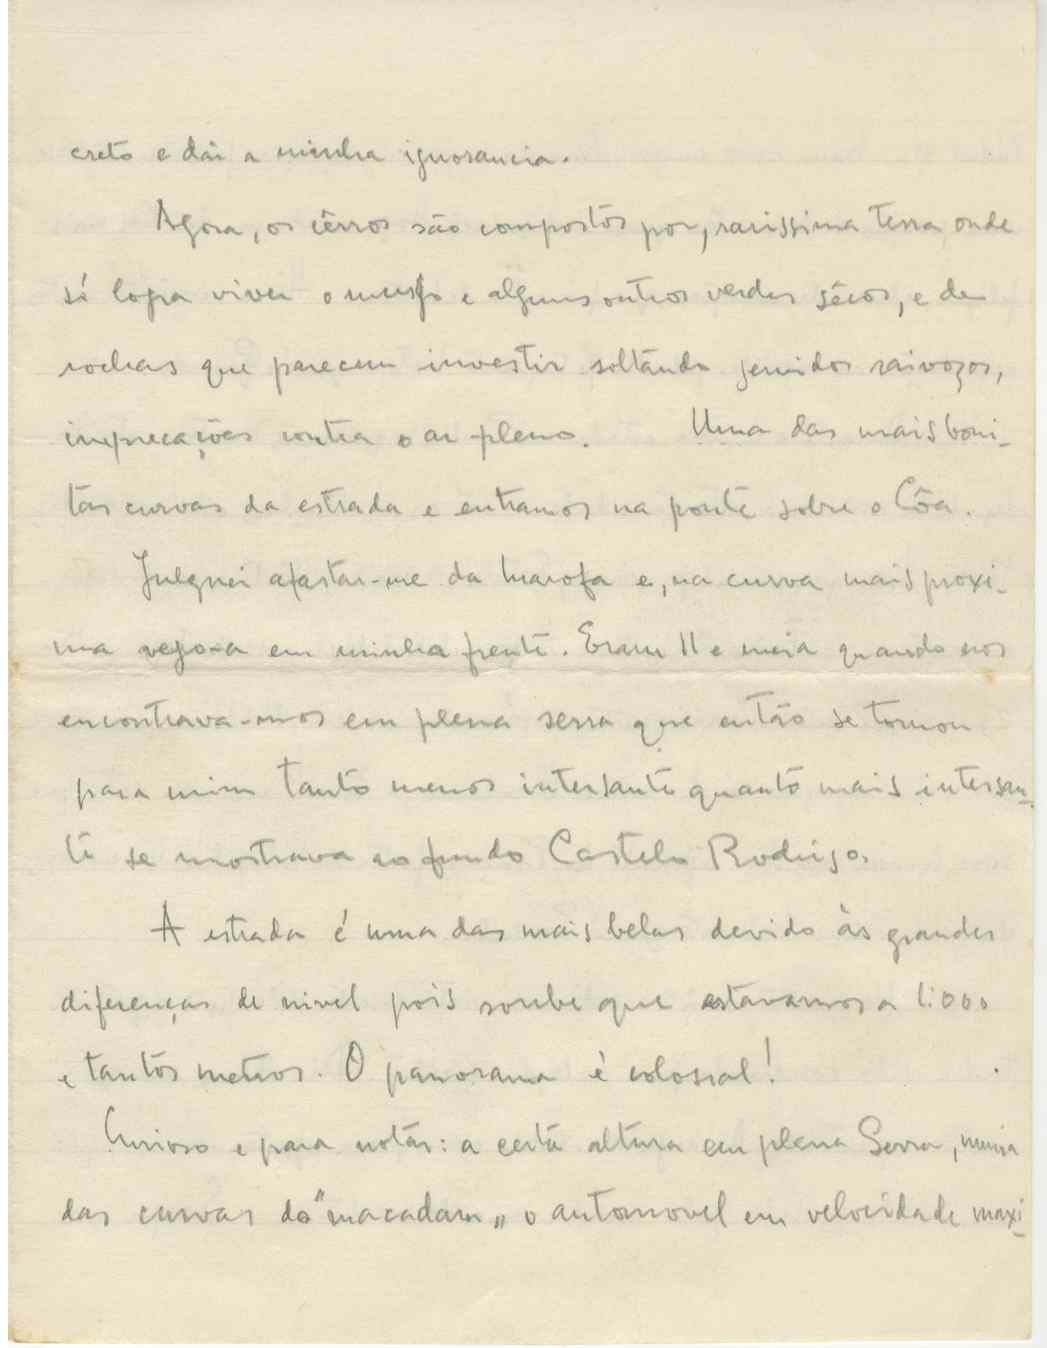 creto e daí a minha ignorancia.
Agora, os cêrros são compostos por, rarissima terra onde
só logra viver o musgo e alguns outros verdes sêcos, e de
rochas que parecem investir soltando gemidos raivozos,
imprecações contra o ar pleno. Uma das mais boni-
tas curvas da estrada e entramos na ponte sobre o Côa.
Julguei afastar-me da Marofa e, na curva mais proxi-
ma vejo-a em minha frente. Eram 11 e meia quando nos
encontrava-mos em plena serra que então se tornou
para mim tanto menos intersante quanto mais intersan-
te se mostrava ao fundo Castelo Rodrigo.
A estrada é uma das mais belas devido às grandes
diferenças de nivel pois soube que estavamos a 1:000
e tantos metros. O panorama é colossal!
Curioso e para notar: a certa altura em plena Serra, numa
das curvas do "macadam" o automovel em velocidade maxi-